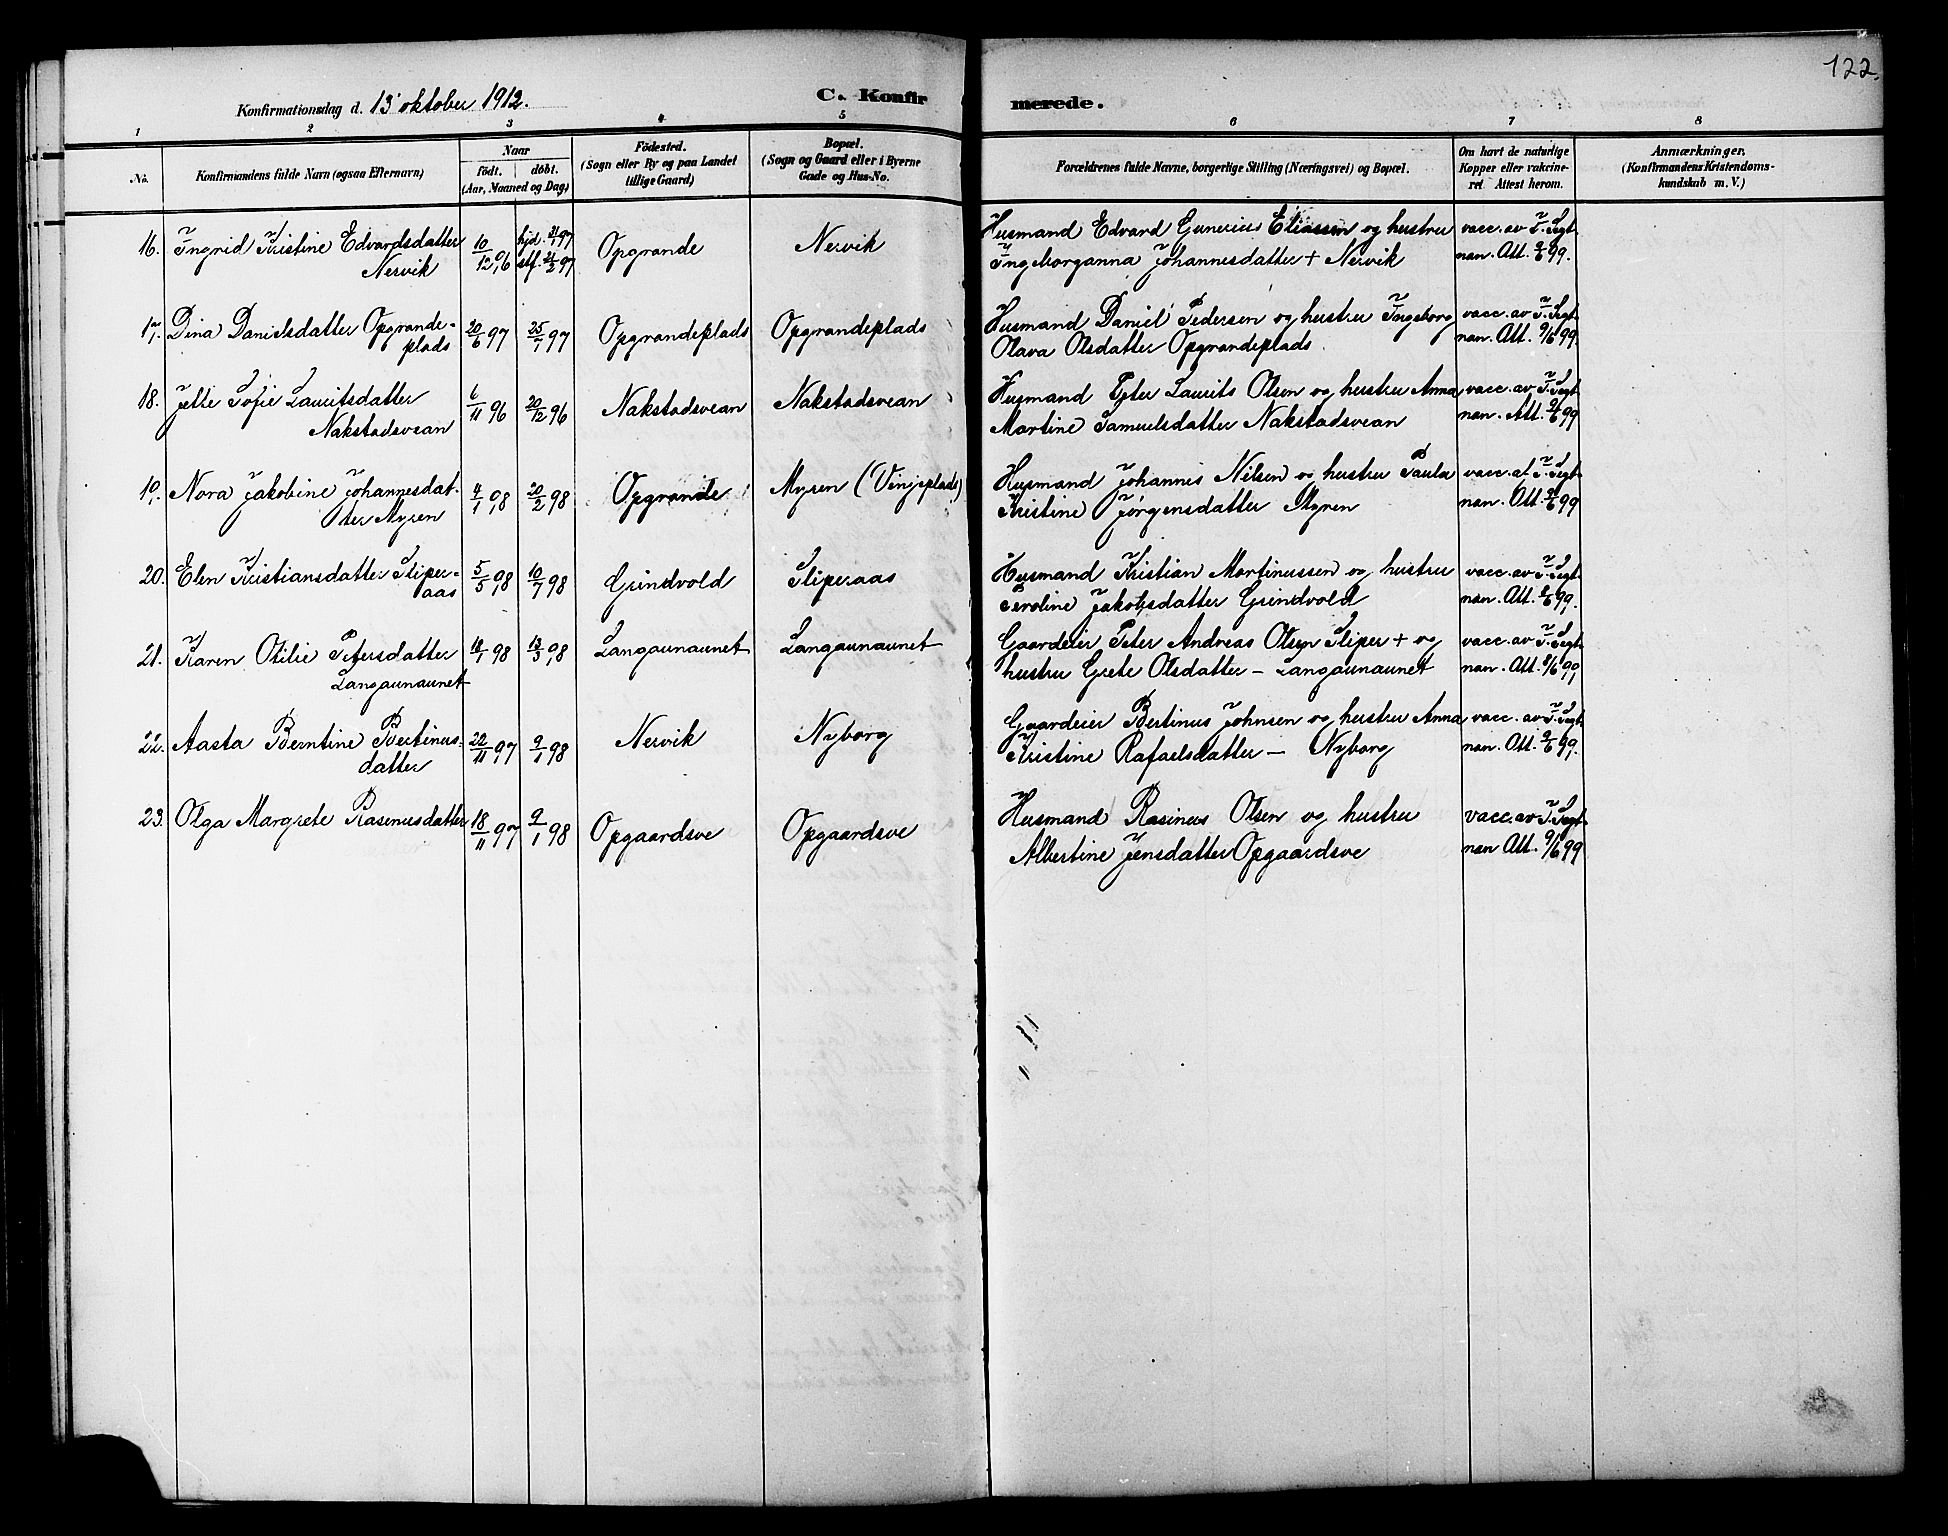 122.
Konfirmationsdag d. 13 oktober 1912.
C. Konfirmerede.
1 2 3 4 5 6 7 8
No.
Konfirmandens fulde Navn (ogsaa Efternavn)
Naar
födt. döbt.
(Aar, Maaned og Dag)
Födested.
(Sogn eller By og paa Landet
tillige Gaard)
Bopæl.
(Sogn og Gaard eller i Byerne
Gade og Hus-No.
Forældrenes fulde Navne, borgerlige Stilling (Næringsvei) og Bopæl.
Om havt de naturlige
Kopper eller vakcine-
ret. Attest herom.
Anmærkninger,
(Konfirmandens Kristendoms-
kundskab m. V.)
16. Ingrid Kristine Edvardsdatter
Nervik
10/12 96
hjd. 3/1 97
stf. 21/2 97
Opgrande
Nervik
Husmand Edvard Gunerius Eliassen og hustru
Ingeborganna Johannesdatter + Nervik
vacc. av T. Segt-
nan. Att. 9/6 99.
17. Dina Danielsdatter Opgrande-
plads
20/6 97
25/7 97
Opgrandeplads
Opgrandeplads
Husmand Daniel Pedersen og hustru Ingeborg
Olava Olsdatter Opgrandeplads.
vacc. av T. Segt-
nan. Att. 9/6 99
18. Jette Sofie Lauritsdatter
Nakstadsvean
6/11 96
20/12 96
Nakstadsvean
Nakstadsvean
Husmand Peter Laurits Olsen og hustru Anna
Martine Samuelsdatter Nakstadsvean
vacc. av T. Segt-
nan. Att. 9/6 99
19. Nora Jakobine Johannesdat-
ter Myren
4/1 98
20/2 98
Opgrande
Myren (Vinjeplads)
Husmand Johannes Nilsen og hustru Paula
Kristine Jörgensdatter Myren
vacc. af T. Segt-
nan. Att. 9/6 99
20. Elen Kristiansdatter Sliper-
aas
5/5 98
10/7 98
Grindvold
Sliperaas
Husmand Kristian Martinussen og hustru
Peroline Jakobsdatter Grindvold
vacc. av T. Segt-
nan. Att. 9/6 99.
21. Karen Otilie Petersdatter
Langaunaunet
/1 98
13/3 98
Langaunaunet
Langaunaunet
Gaardeier Peter Andreas Olsen Sliper + og
hustru Grete Olsdatter - Langaunaunet
vacc. av T. Segt-
nan. Att. 9/6 99,
22. Aasta Berntine Bertinus-
datter
22/11 97
9/1 98
Nervik
Nyborg
Gaardeier Bertinus Johnsen og hustru Anna
Kristine Rafaelsdatter - Nyborg
vacc. av T. Segt-
nan. Att. 9/6 99.
23. Olga Margrete Rasinusdatter
18/11 97
9/1 98
Opgaardsve
Opgaardsve
Husmand Rasinus Olsen og hustru
Albertine Jensdatter Opgaardsve
vacc. av T. Segt-
nan Att. 9/6 99